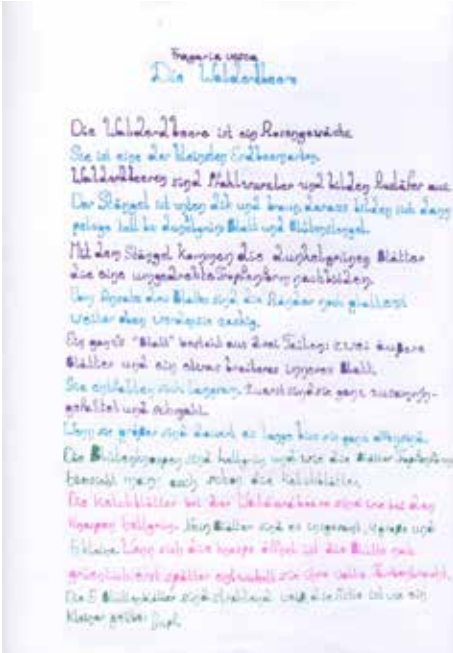 Fragaria vesca
Die Walderdbeere
Die Walderdbeere ist ein Rosengewächs
Sie ist eine der kleinsten Erdbeerarten.
Walderdbeeren sind Pfahlwurzler und bilden Ausläufer aus.
Der Stängel ist unten dick und braun, daraus bilden sich dann
Blatt und Blütenstengel.
Mit dem Stängel kommen die dunkelgrünen Blätter
die eine umgedrehte Tropfenform nachbilden.
Vom Ansatz des Blatts sind die Ränder noch glatt
weiter oben werden sie zackig.
Ein ganzes "Blatt" besteht aus drei Teilen: zwei äußere
Blätter und ein etwas breiteres inneres Blatt.
Sie entfalten sich langsam. Zuerst sind sie ganz zusammen-
gefaltet und schmal.
Wenn sie größer sind dauert es lange bis sie ganz offen sind.
Die Blütenknospen sind hellgrün und wie die Blätter
man auch schon die Kelchblätter.
Die Kelchblätter bei der Walderdbeere sind wie bei den
Knospen hellgrün. Blätter sind es insgesamt, große und
kleine. Wenn sich die Knospe öffnet ist die Blüte noch
grünlich erst später entwickelt sie ihre
Die 5 Blütenblätter sind strahlend weiß die Mitte ist wie ein
kleiner gelber